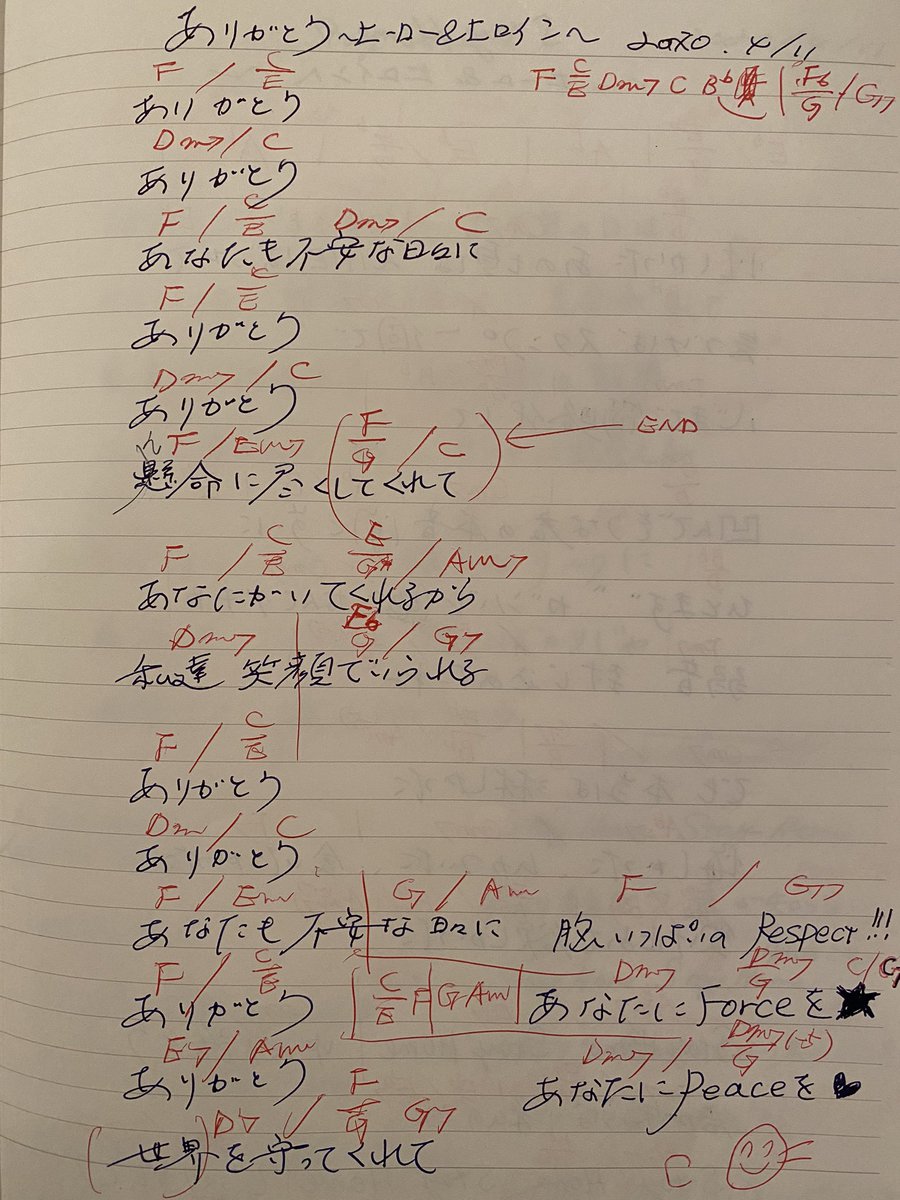 ありがとう〜ヒーロー&ヒロイン〜 2020.4/11
F C/E Dm7 C B♭ | F6/G / G7
F / C/E
ありがとう
Dm7 / C
ありがとう
F / C/E Dm7 / C
あなたも不安な日々に
F / C/E
ありがとう
Dm7 / C
ありがとう
F / Em7 (F/G / C) ← END
懸命に尽くしてくれて
F / C/E E/G# / Am7
あなたがいてくれるから
Dm7 F6/G / G7
私達 笑顔でいられる
F / C/E
ありがとう
Dm / C
ありがとう
F / Em G / Am
あなたも不安な日々に
F / C/E
ありがとう
C/E F G Am
E7 / Am
ありがとう
D7 / F/G G7
(世界を守ってくれて
F / G7
腹いっぱいの Respect!!!
Dm7 Dm7/G C/G
あなたに Forceを★
Dm7 / Dm7/G
あなたに Peaceを♥
C